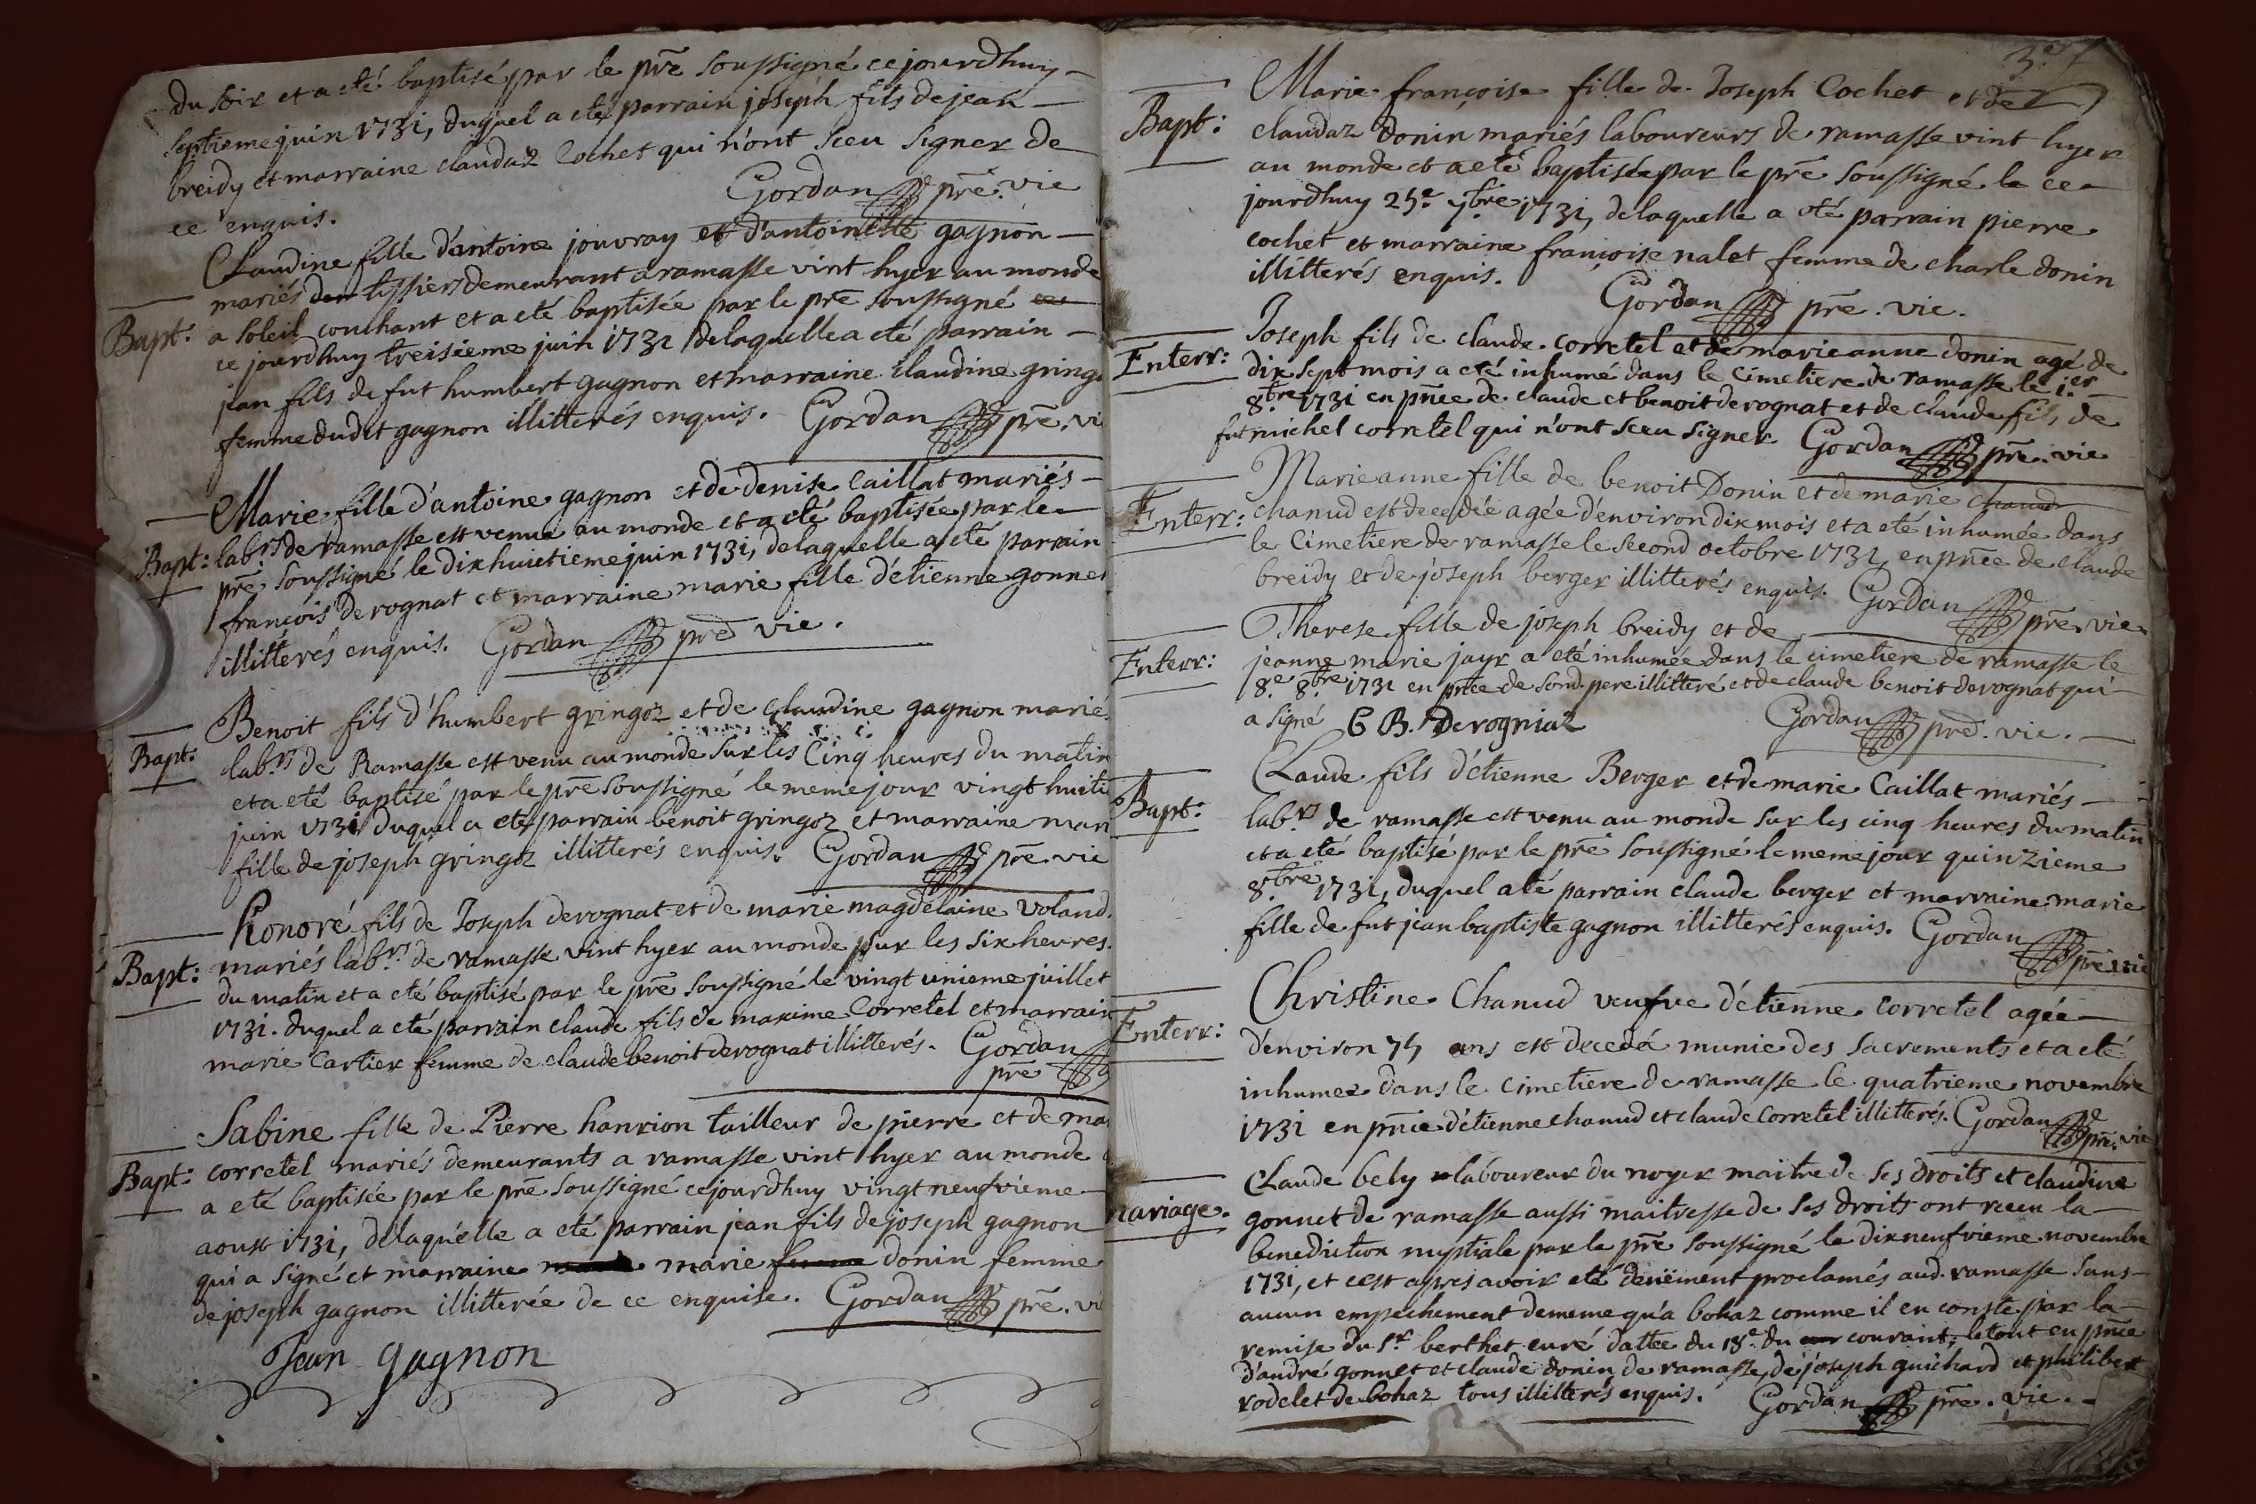 du soir et a eté baptisé par le prē soussigné cejourdhuy
septieme juin 1731, duquel a eté parrain joseph fils de jean
breidy et marraine claudaz cochet qui n'ont sceu signer de
ce enquis. Gordan prē. vic
Claudine fille d'antoine jouvray et d'antoinette gagnon
mariés tissiers demeurant a ramasse vint hyer au monde
Bapt: a soleil couchant et a eté baptisée par le prē soussigné
ce jourdhuy treisieme juin 1731 delaquelle a eté parrain
jean fils de fut humbert gagnon et marraine claudine gringo
femme dudit gagnon illitterés enquis. Gordan prē. vi
Marie fille d'antoine gagnon et de denise caillat mariés
Bapt: lab.rs de ramasse est venue au monde et a eté baptisée par le
prē soussigné le dixhuictieme juin 1731, delaquelle a eté parrain
françois derognat et marraine marie fille d'etienne gonne
illitterés enquis. Gordan prē vic.
Benoit fils d'humbert gringoz et de claudine gagnon marie
Bapt: lab.rs de Ramasse est venu au monde sur les cinq heures du matin
et a eté baptisé par le prē soussigné le meme jour vingt huiti
juin 1731 duquel a eté parrain benoit gringoz et marraine mari
fille de joseph gringoz illitterés enquis. Gordan prē. vic
honoré fils de Joseph derognat et de marie magdelaine voland.
Bapt: mariés lab.rs de ramasse vint hyer au monde sur les six heures.
du matin et a eté baptisé par le prē soussigné le vingt unieme juillet
1731. duquel a eté parrain claude fils de maxime corretel et marrain
marie cartier femme de claude benoit derognat illitterés. Gordan
prē
Sabine fille de Pierre hanrion tailleur de pierre et de ma
Bapt: corretel mariés demeurants a ramasse vint hyer au monde
a eté baptisée par le prē soussigné cejourdhuy vingt neufvieme
aoust 1731, delaquelle a eté parrain jean fils de joseph gagnon
qui a signé et marraine marie femme donin femme
de joseph gagnon illitterée de ce enquise. Gordan prē. vi
Jean gagnon
3.
Marie françoise fille de Joseph Cochet et de
Bapt: claudaz donin mariés laboureurs de ramasse vint hyer
au monde et a eté baptisée par le prē soussigné le ce
jourdhuy 25.e 7bre 1731, delaquelle a eté parrain pierre
cochet et marraine françoise nalet femme de charle donin
illitterés enquis. Gordan prē. vic.
Joseph fils de claude corretel et de marie anne donin agé de
Enterr: dix sept mois a eté inhumé dans le cimetiere de ramasse le 1.er
8.bre 1731 en pn̄ce de claude et benoit derognat et de claude fils de
fut michel corretel qui n'ont sceu signer Gordan prē. vic
Marieanne fille de benoit Donin et de marie chanud
Enterr: chanud est decedée agée d'environ dix mois et a eté inhumée dans
le cimetiere de ramasse le second octobre 1731, en pn̄ce de claude
breidy et de joseph berger illitterés enquis. Gordan prē. vic.
Therese fille de joseph breidy et de
Enterr: jeanne marie jayr a eté inhumée dans le cimetiere de ramasse le
8.e 8.bre 1731 en pn̄ce de sond. pere illitteré et de claude benoit derognat qui
a signé C B. Derogniaz Gordan prē. vic.
Claude fils d'etienne Berger et de marie Caillat mariés
Bapt: lab.rs de ramasse est venu au monde sur les cinq heures du matin
et a eté baptisé par le prē soussigné le meme jour quinzieme
8.bre 1731, duquel a eté parrain claude berger et marraine marie
fille de fut jean baptiste gagnon illitterés enquis. Gordan
prē vic
Christine Chanud veufve d'etienne corretel agée
Enterr: d'environ 75 ans est decedé munie des sacrements et a eté
inhumee dans le cimetiere de ramasse le quatrieme novembre
1731 en pn̄ce d'etienne chanud et claude corretel illitterés. Gordan prē. vic
Claude bely laboureur du noyer maitre de ses droits et claudine
mariage. gonnet de ramasse aussi maitresse de ses droits ont receu la
benediction nuptiale par le prē soussigné le dixneufvieme novembre
1731, et c'est apres avoir eté deüement proclamés aud. ramasse sans
aucun empechement dememe qu'a bohaz comme il en conste par la
remise du s.r berthet curé dattée du 18.e du courant, le tout en pn̄ce
d'andré gonnet et claude donin de ramasse, de joseph guichard et philibert
rodelet de bohaz tous illitterés enquis. Gordan prē. vic.